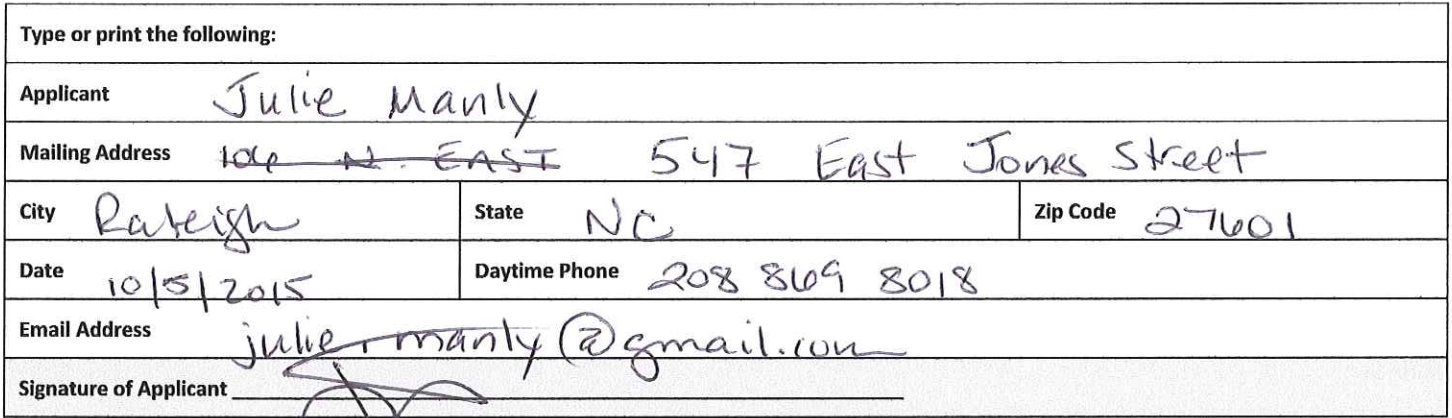 Type or print the following:
Applicant Julie Manly
Mailing Address 104 N. EAST 547 East Jones Street
City Raleigh State NC Zip Code 27601
Date 10/5/2015 Daytime Phone 208 869 8018
Email Address julie.manly@gmail.com
Signature of Applicant